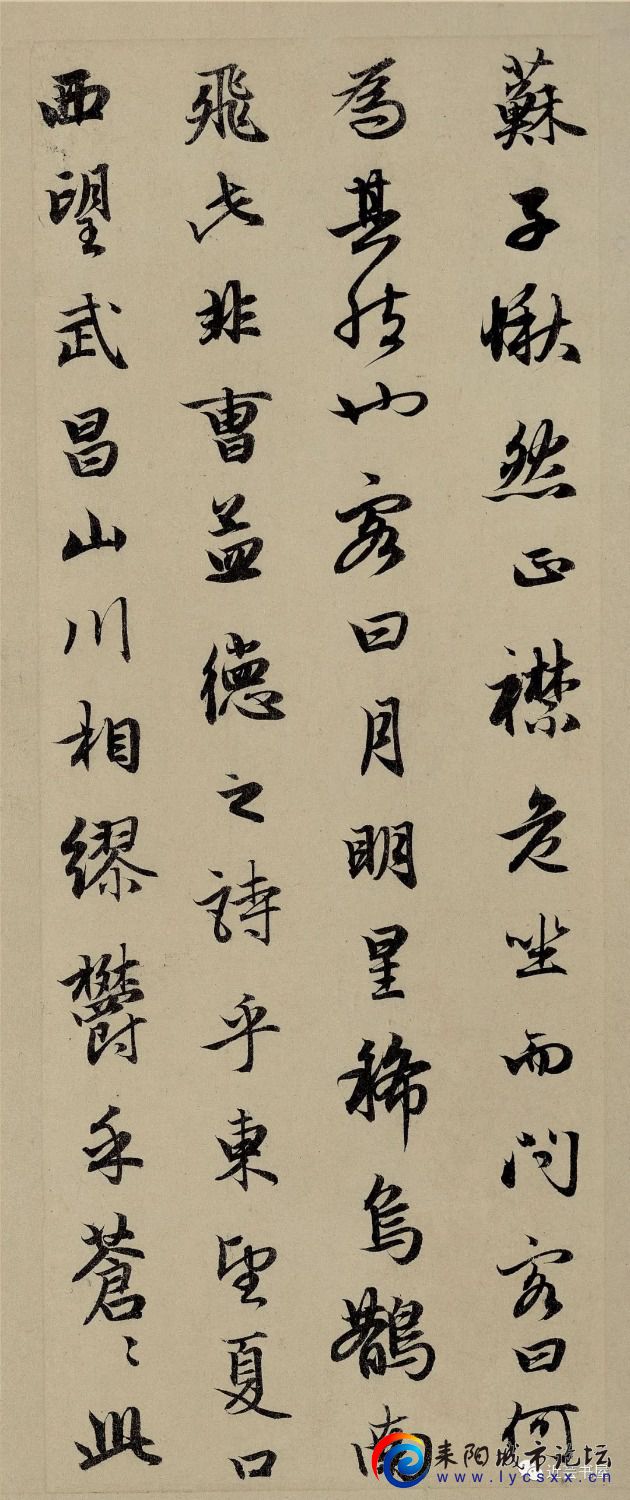 蘇子愀然正襟危坐而問客曰何
為其然也客曰月明星稀烏鵲南
飛此非曹益德之詩乎東望夏口
西望武昌山川相繆鬱乎蒼〻此
耒阳城市论坛
www.lycsxx.cn
书屋